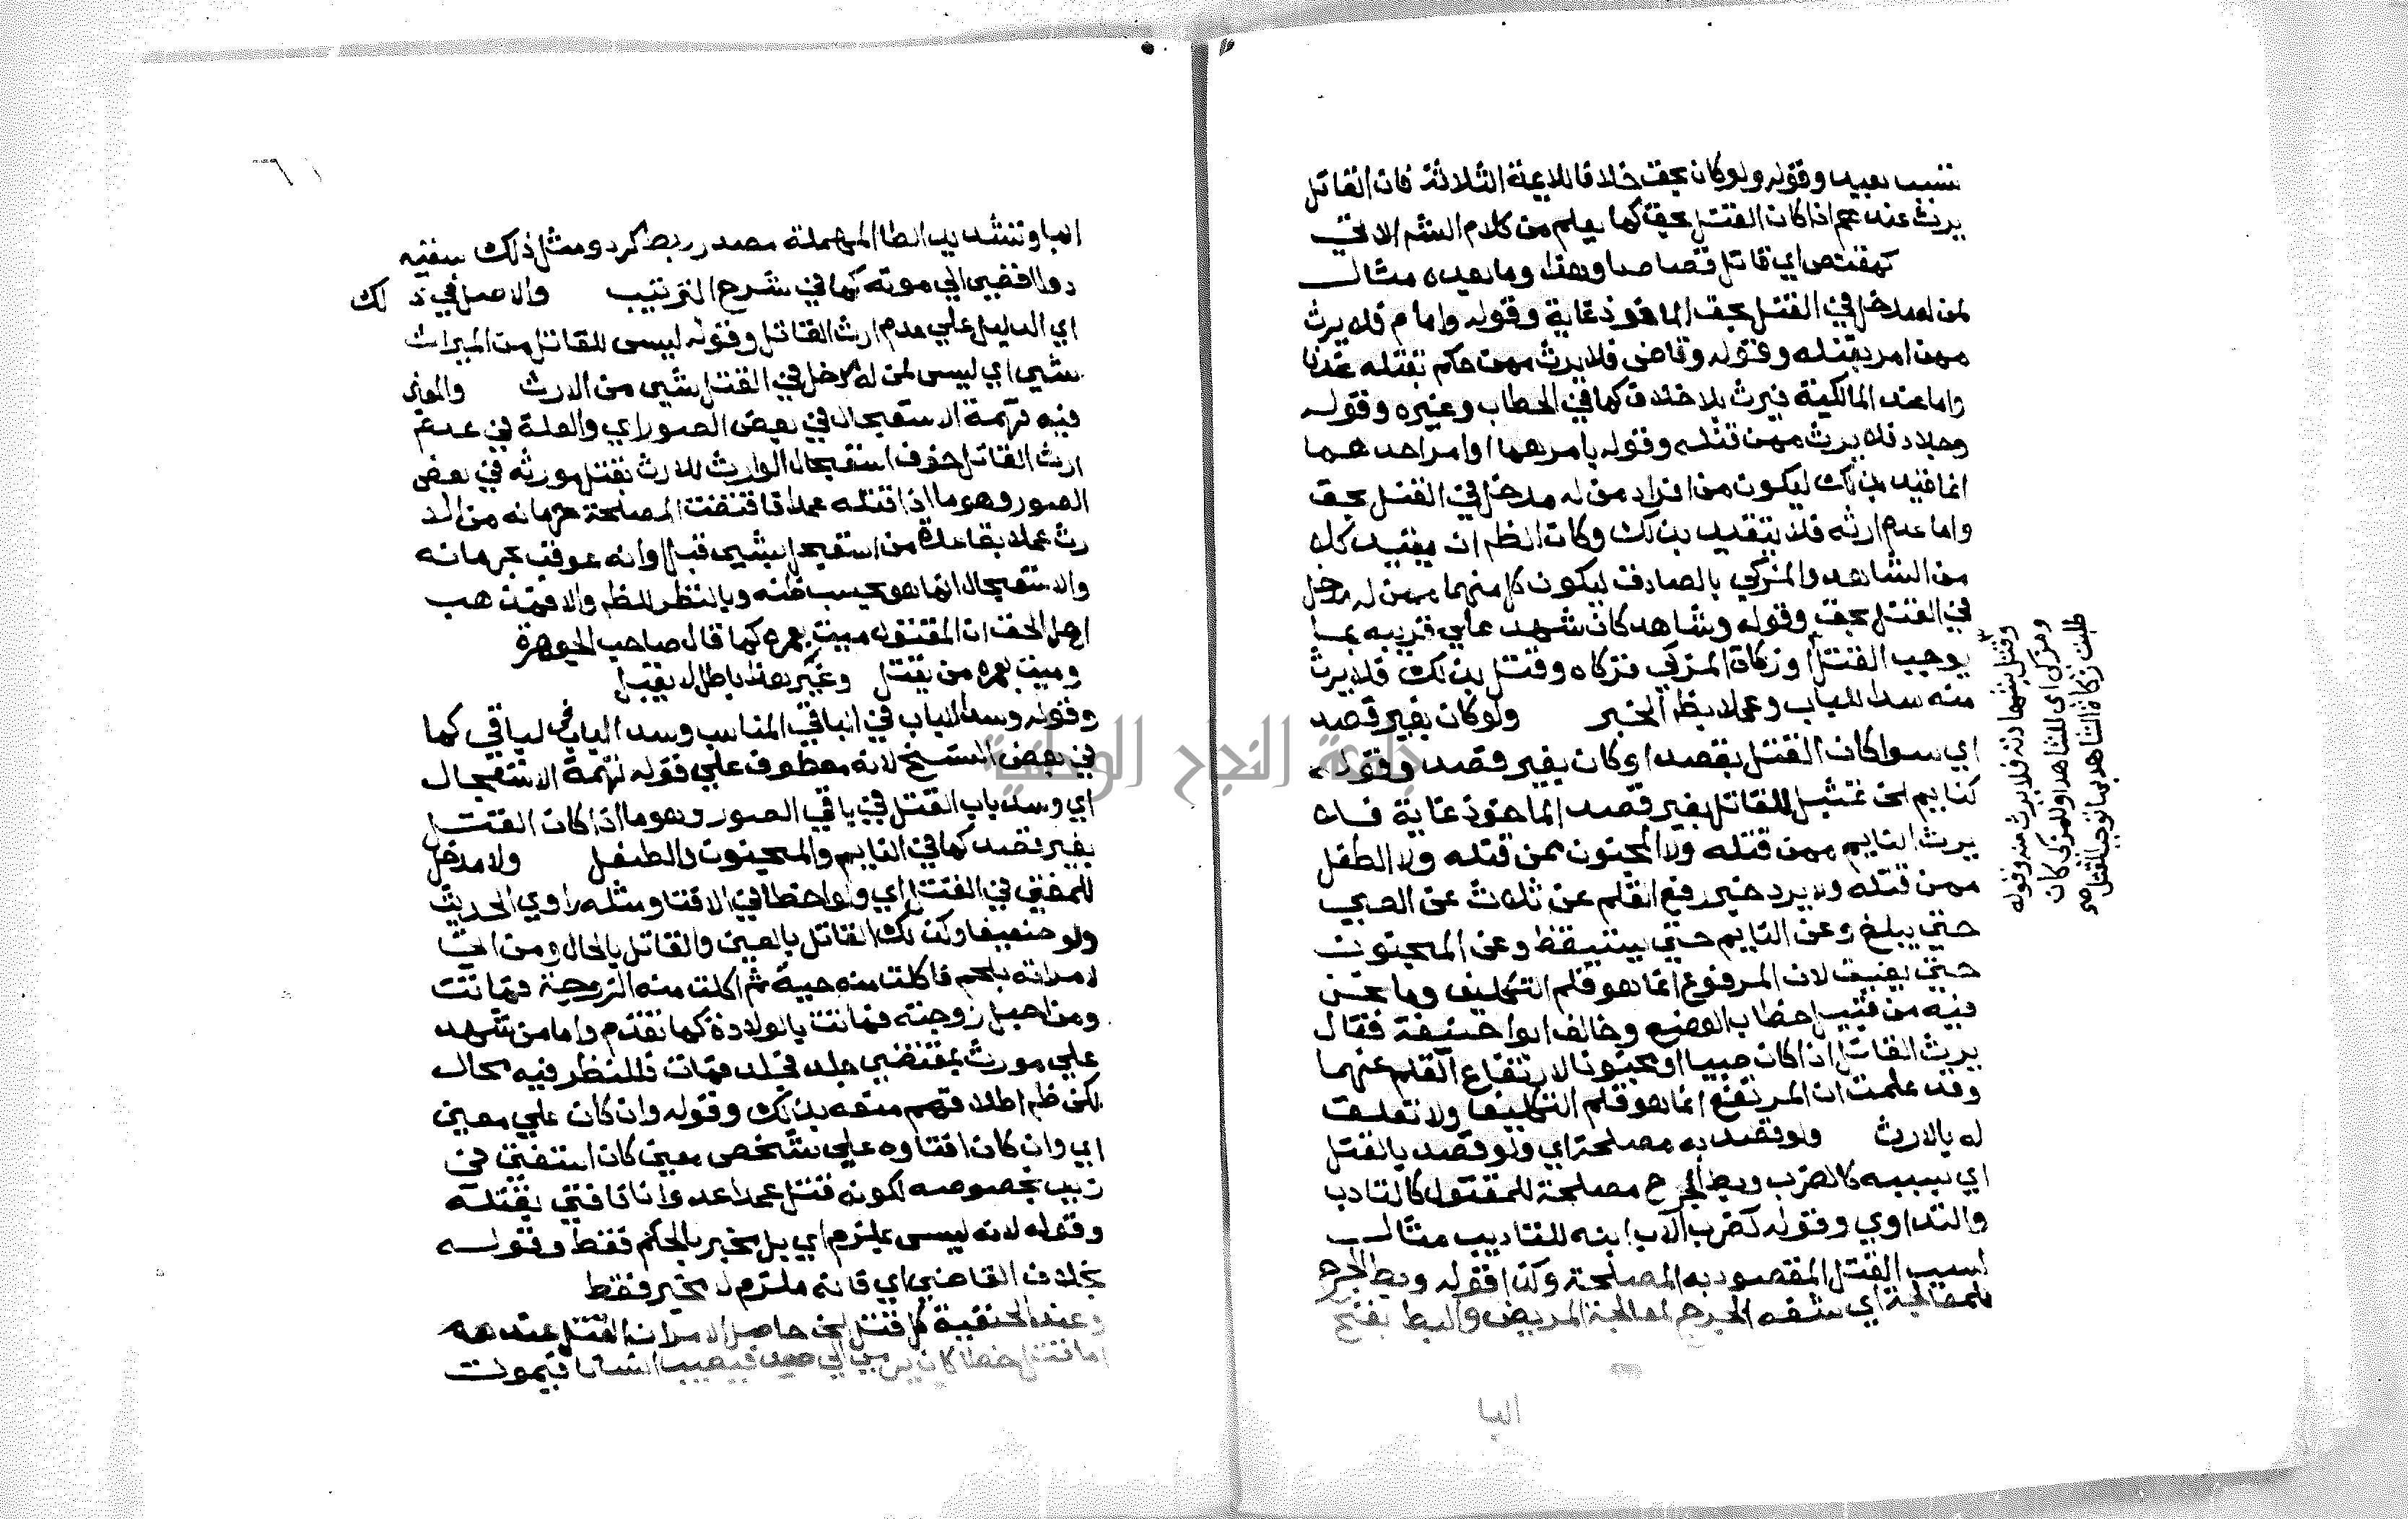 بسبب بعيد وقوله ولو كان بحق خلافا للايمة الثلاثة فان القاتل
يرث عندهم اذا كان القتل بحق كما يعلم من كلام الشم الاتي
كمقتص اي قاتل قصاصا وهذا وما بعده مثال
لمن له مدخل في القتل بحق وقوله وامام فلا يرث
ممن امر بقتله وقوله وقاضي فلا يرث ممن حكم بقتله عندنا
واما عند المالكية فيرث بلا خلاف كما في الحطاب وغيره وقوله
وجلاد فلا يرث ممن قتله وقوله بامرهما او امر احدهما
انما قيد بذلك ليكون من افراد من له مدخل في القتل بحق
واما عدم ارثه فلا يتقيد بذلك وكان الظم ان يقيد كلا
من الشاهد والمزكي بالصادق ليكون كل منهما ممن له مدخل
في القتل بحق وقوله وشاهد كان شهد علي قريبه بما
يوجب القتل او زكاة المزكي فزكاه وقتل بذلك فلا يرث
منه سدا للباب وعملا بظ الخبر ولو كان بغير قصد
اي سوا كان القتل بقصد او كان بغير قصد وقوله
كنايم الخ تمثيل للقاتل بغير قصد فلا
يرث النايم ممن قتله ولا المجنون ممن قتله ولا الطفل
ممن قتله ولا يرد خبر رفع القلم عن ثلاث عن الصبي
حتي يبلغ وعن النايم حتي يستيقظ وعن المجنون
حتي يفيق لان المرفوع انما هو قلم التكليف وما نحن
فيه من قبيل خطاب الوضع وخالف ابوا حنيفة فقال
يرث القاتل اذا كان صبيا او مجنونا لارتفاع القلم عنهما
وقد علمت ان المرتفع انما هو قلم التكليف ولا تعلق
له بالارث ولو قصد به مصلحة اي ولو قصد بالقتل
اي بسببه كالضرب وبط الجرح مصلحة للمقتول كالتادب
والتداوي وقوله كضرب الاب ابنه للتاديب مثال
لسبب القتل المقصود به المصلحة وكذا قوله وبط الجرح
للمعالجة اي شقه الجرح لمعالجة المريض والبط بفتح
البا
وقتل بشهادته فلا يرث منه وقوله
ومزكي اي للشاهد او للمزكي كان
طلبت زكاة الشاهد بما توجب القتل صح
البا وتشديد الطا المهملة مصدر بط كرد ومثل ذلك سقيه
دوا افضي الي موته كما في شرح الترتيب والاصل في ذلك
اي الدليل علي عدم ارث القاتل وقوله ليس للقاتل من الميراث
شيي اي ليس لمن له دخل في القتل شيي من الارث والمعني
فيه تهمة الاستعجال في بعض الصور اي والعلة في عدم
ارث القاتل خوف استعجال الوارث للارث بقتل مورثه في بعض
الصور وهو ما اذا قتله عمدا فاقتضت المصلحة حرمانه من الا
رث عملا بقاعدة من استعجل بشيي قبل اوانه عوقب بحرمانه
والاستعجال انما هو بحسب ظنه وبالنظر للظم والا فمذهب
اهل الحق ان المقتول ميت بعمره كما قال صاحب الجوهرة
وميت بعمره من يقتل وغير هذا باطل لا يقبل
وقوله وسدا للباب في الباقي المناسب وسد الباب في الباقي كما
في بعض النسخ لانه معطوف علي قوله تهمة الاستعجال
اي وسد باب القتل في باقي الصور وهو ما اذا كان القتل
بغير قصد كما في النايم والمجنون والطفل ولا مدخل
للمفتي في القتل اي ولو اخطا في الافتا ومثله راوي الحديث
ولو ضعيفا وكذلك القاتل بالعين والقاتل بالحال ومن اتي
لامراته بلحم فاكلت منه حية ثم اكلت منه الزوجة فماتت
ومن احبل زوجته فماتت بالولادة كما تقدم واما من شهد
علي مورث بمقتضي جلد فجلد فمات فللنظر فيه مجال
لكن ظم اطلاقهم منعه بذلك وقوله وان كان علي معين
اي وان كان افتاوه علي شخص معين كان استفتي في
زيد بخصوصه لكونه قتل عمدا عدوانا فافتي بقتله
وقوله لانه ليس بملزم اي بل مخبر بالحكم فقط وقوله
بخلاف القاضي اي فانه ملزم لا مخبر فقط
وعند الحنفية كل قتل الخ حاصل الامر ان القتل عندهم
اما قتل خطا كان يرمي الي صيد فيصيب انسانا فيموت
جامعة النجاح الوطنية